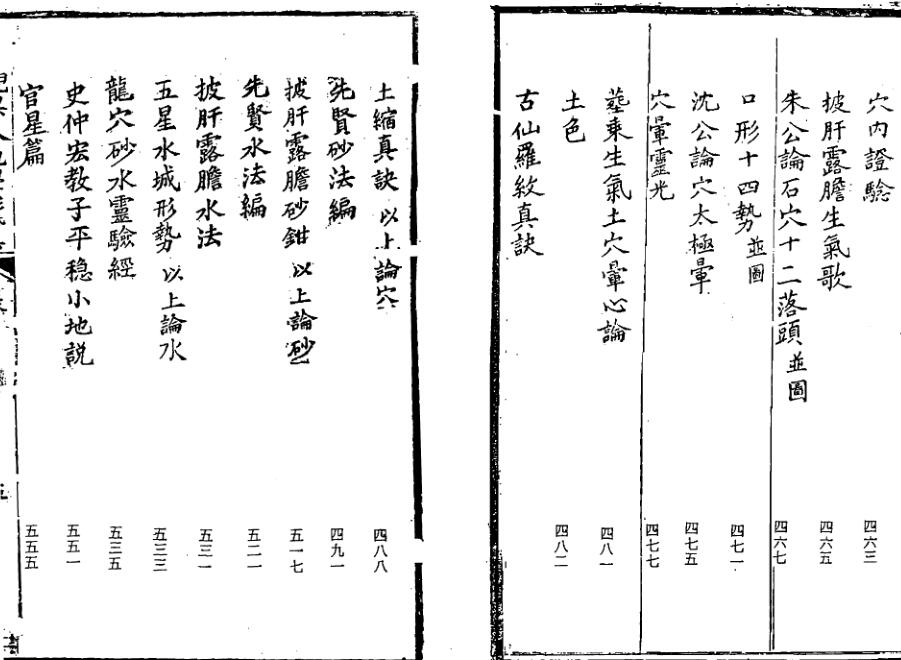 穴內證驗 四六三
披肝露膽生氣歌 四六五
朱公論石穴十二落頭 並圖 四六七
口形十四勢 並圖 四七一
沈公論穴太極暈 四七五
穴暈靈光 四七七
葬乘生氣土穴暈心論 四八一
土色 四八二
古仙羅紋真訣
土縮真訣 以上論穴 四八八
先賢砂法編 四九一
披肝露膽砂鉗 以上論砂 五一七
先賢水法編 五二一
披肝露膽水法 五三一
五星水城形勢 以上論水 五三三
龍穴砂水靈驗經 五三五
史仲宏教子平穩小地説 五五一
官星篇 五五五